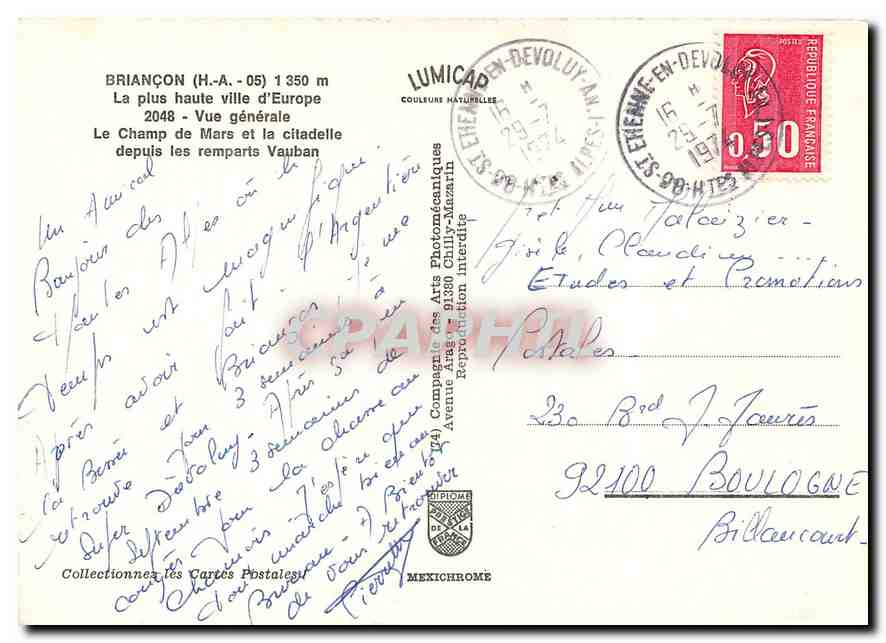 BRIANÇON (H.-A. - 05) 1 350 m
La plus haute ville d'Europe
2048 - Vue générale
Le Champ de Mars et la citadelle
depuis les remparts Vauban
LUMICAP
COULEURS NATURELLES
Un Amical
Bonjour des
Hautes Alpes où le
Temps est magnifique.
Après avoir fait l'Argentière
la Bessée et Briançon je me
retrouve pour 3 semaines à
Super Dévoluy. Après ça en
Septembre 3 semaines de
congés pour la chasse au
Chamois. J'espère que
tout marche bien au
Bureau. A Bientôt
de vous retrouver
Collectionnez les Cartes Postales !
(74) Compagnie des Arts Photomécaniques
Avenue Arago - 91380 Chilly-Mazarin
Reproduction interdite
DIPLOME
PRESTIGE
DE LA
FRANCE
MEXICHROME
ST ETIENNE-EN-DEVOLUY-AN.1
16 H
29-7
1974
05 HTES ALPES
ST ETIENNE-EN-DEVOLUY
16 H
29-7
1974
05 HTES ALPES
POSTES
REPUBLIQUE FRANÇAISE
0,50
Gisèle, Claudine ...
Etudes et Promotions
Postales
230 Brd J. Jaurès
92100 BOULOGNE
Billancourt
CPAPHIL